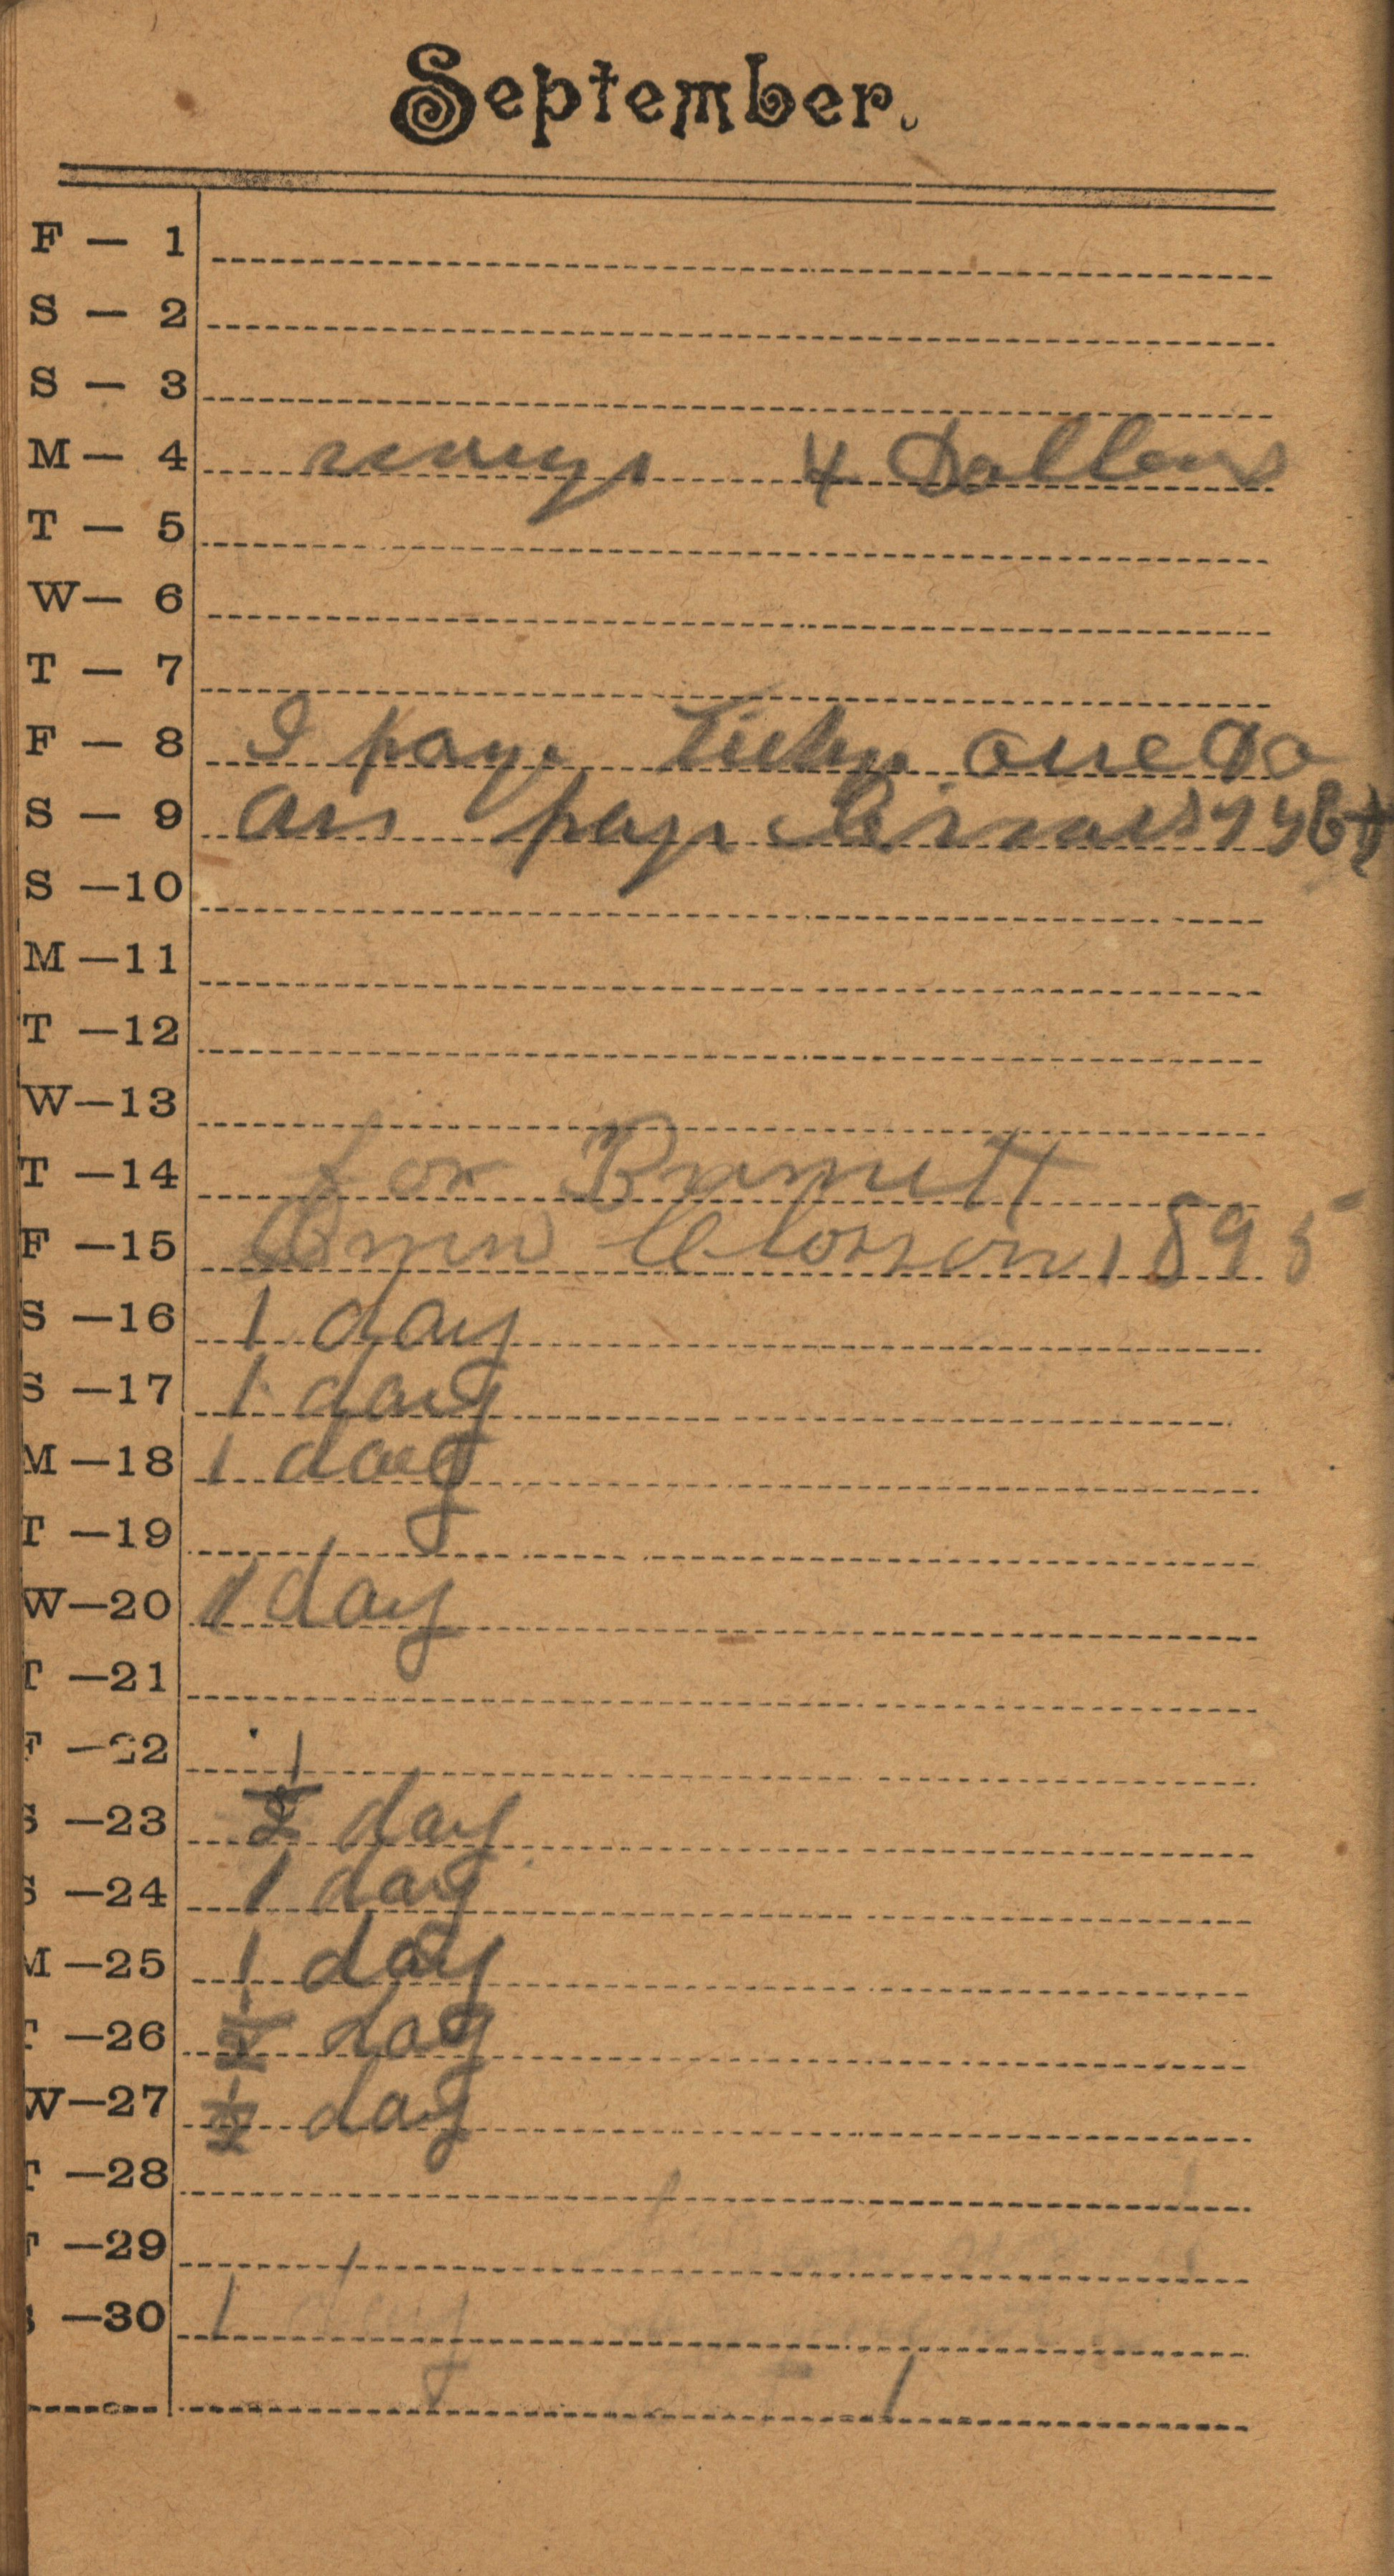 September.
F — 1
S — 2
S — 3
M — 4 4 Dollars
T — 5
W — 6
T — 7
F — 8 I pay one Do
S — 9 pay
S — 10
M — 11
T — 12
W — 13
T — 14 for
F — 15 Closson 1895
S — 16 1 day
S — 17 1 day
M — 18 1 day
T — 19
W — 20 1 day
T — 21
F — 22
S — 23 1/2 day
S — 24 1 day
M — 25 1 day
T — 26 1/2 day
W — 27 1/2 day
T — 28
F — 29
S — 30 1 day